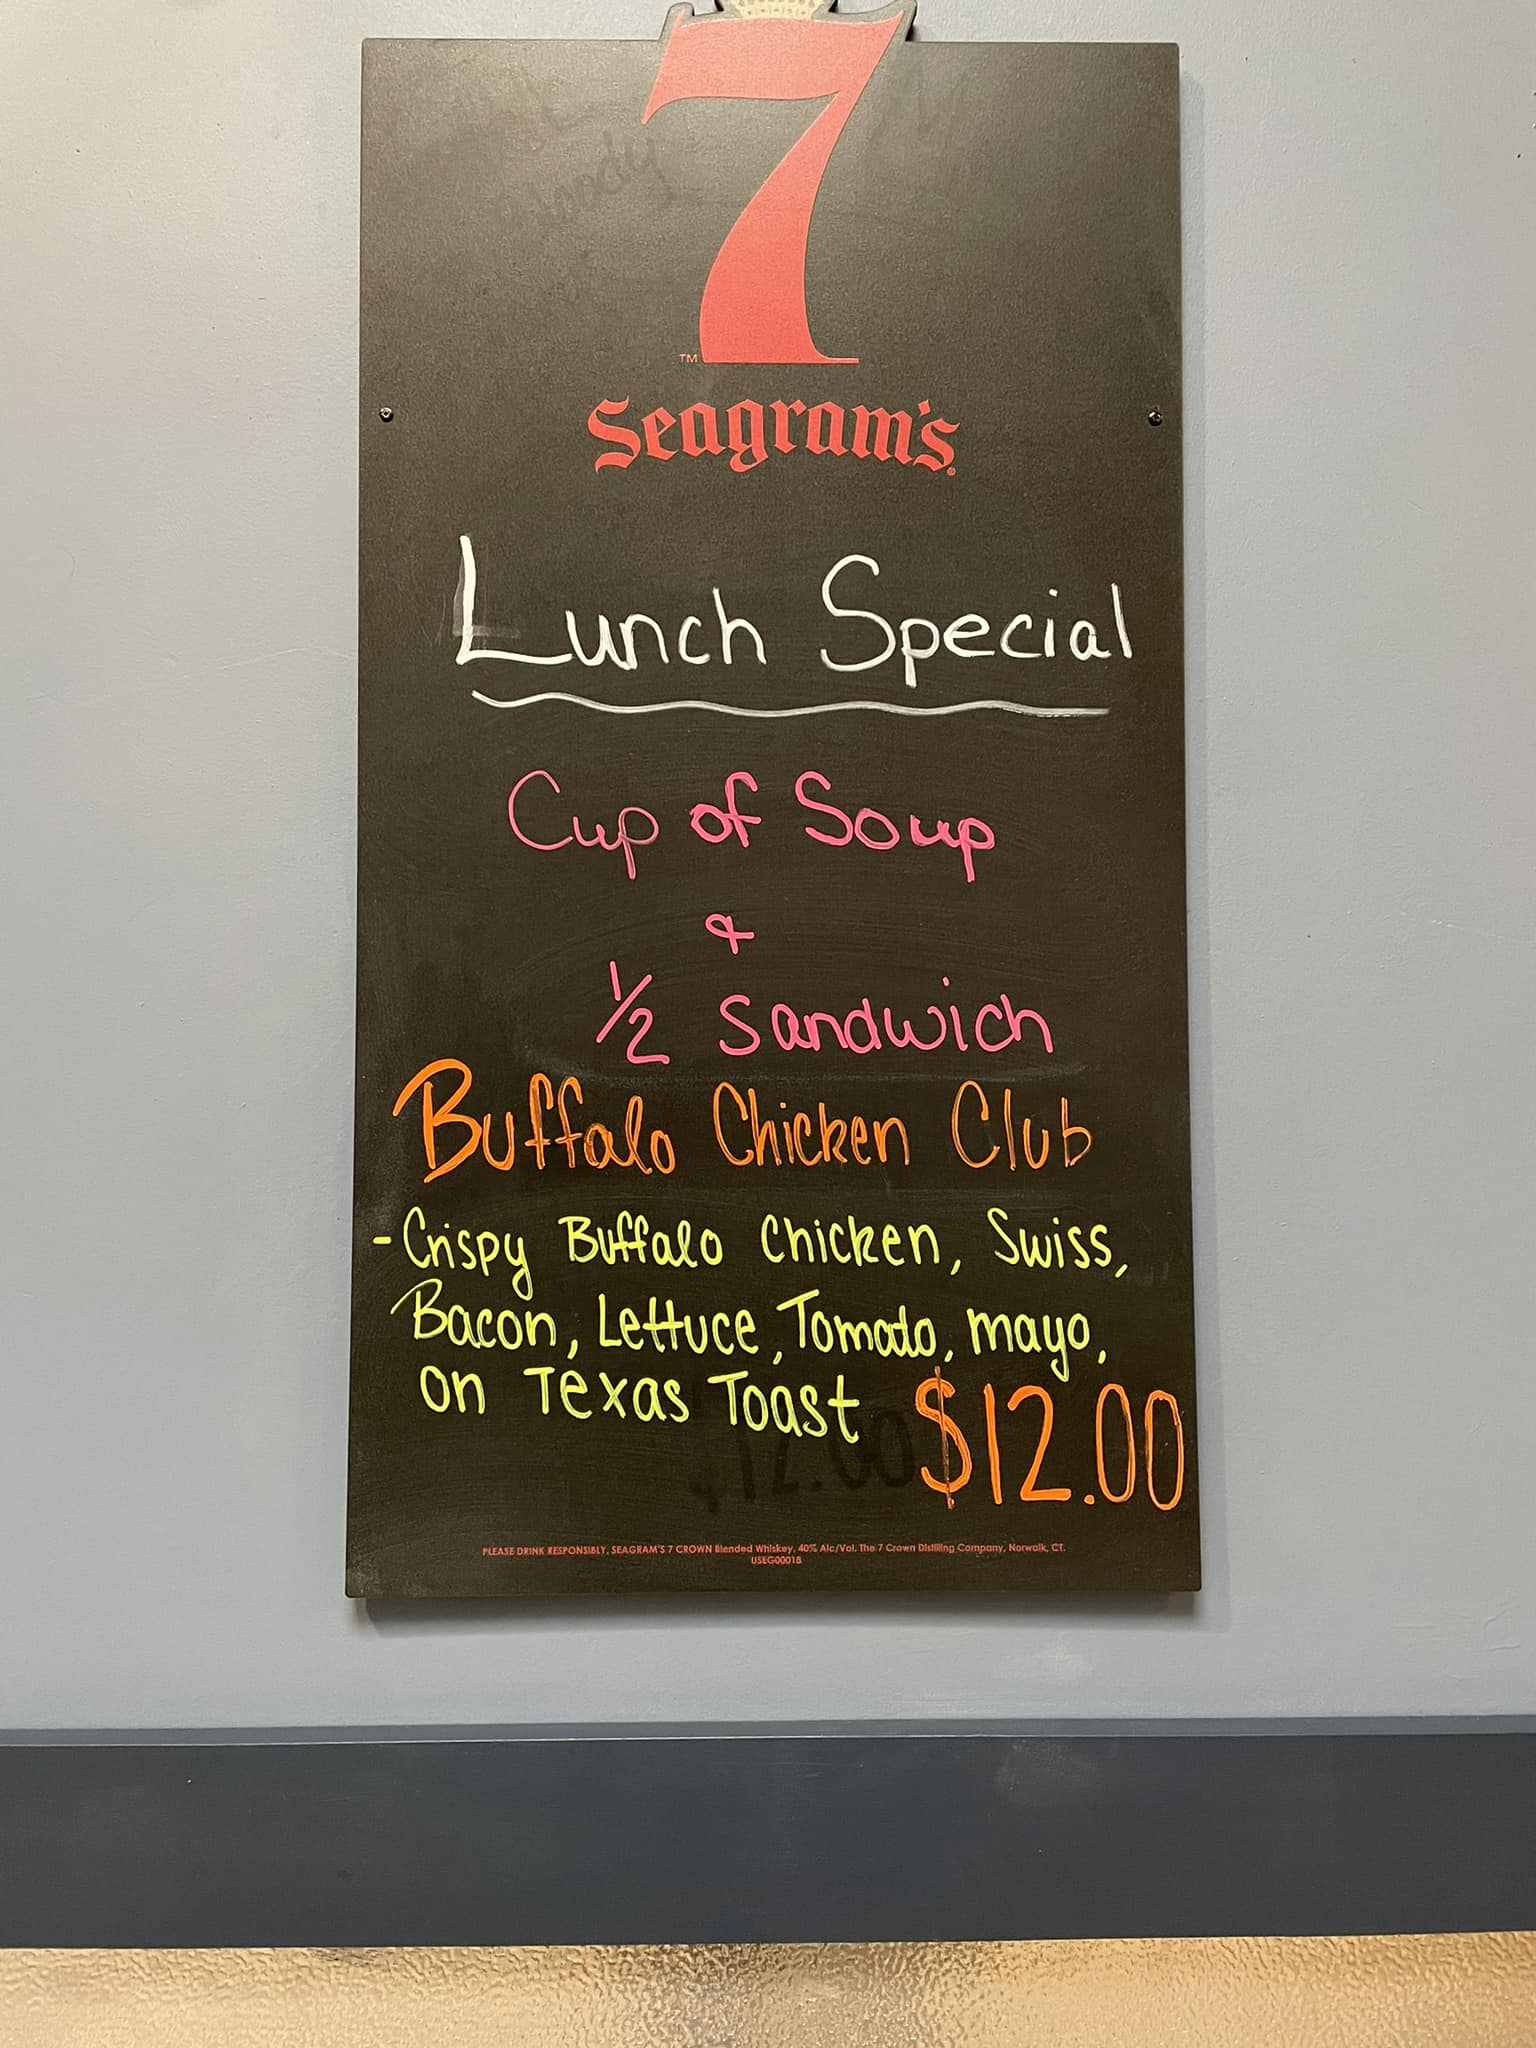 7
TM
Seagram's®
Lunch Special
Cup of Soup
&
1/2 Sandwich
Buffalo Chicken Club
- Crispy Buffalo Chicken, Swiss,
Bacon, Lettuce, Tomato, mayo,
on Texas Toast $12.00
$12.00
PLEASE DRINK RESPONSIBLY. SEAGRAM'S 7 CROWN Blended Whiskey. 40% Alc/Vol. The 7 Crown Distilling Company, Norwalk, CT.
USEG00018